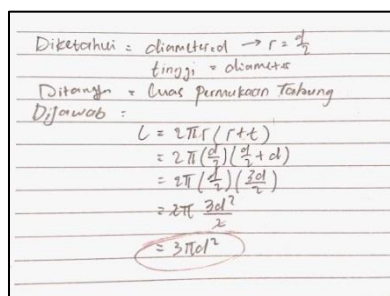 Diketahui = diameter=d → r = d/2
tinggi = diameter
Ditanya = Luas permukaan Tabung
Dijawab =
L = 2πr (r+t)
= 2π(d/2)(d/2+d)
= 2π(d/2)(3d/2)
= 2π 3d²/2
= 3πd²